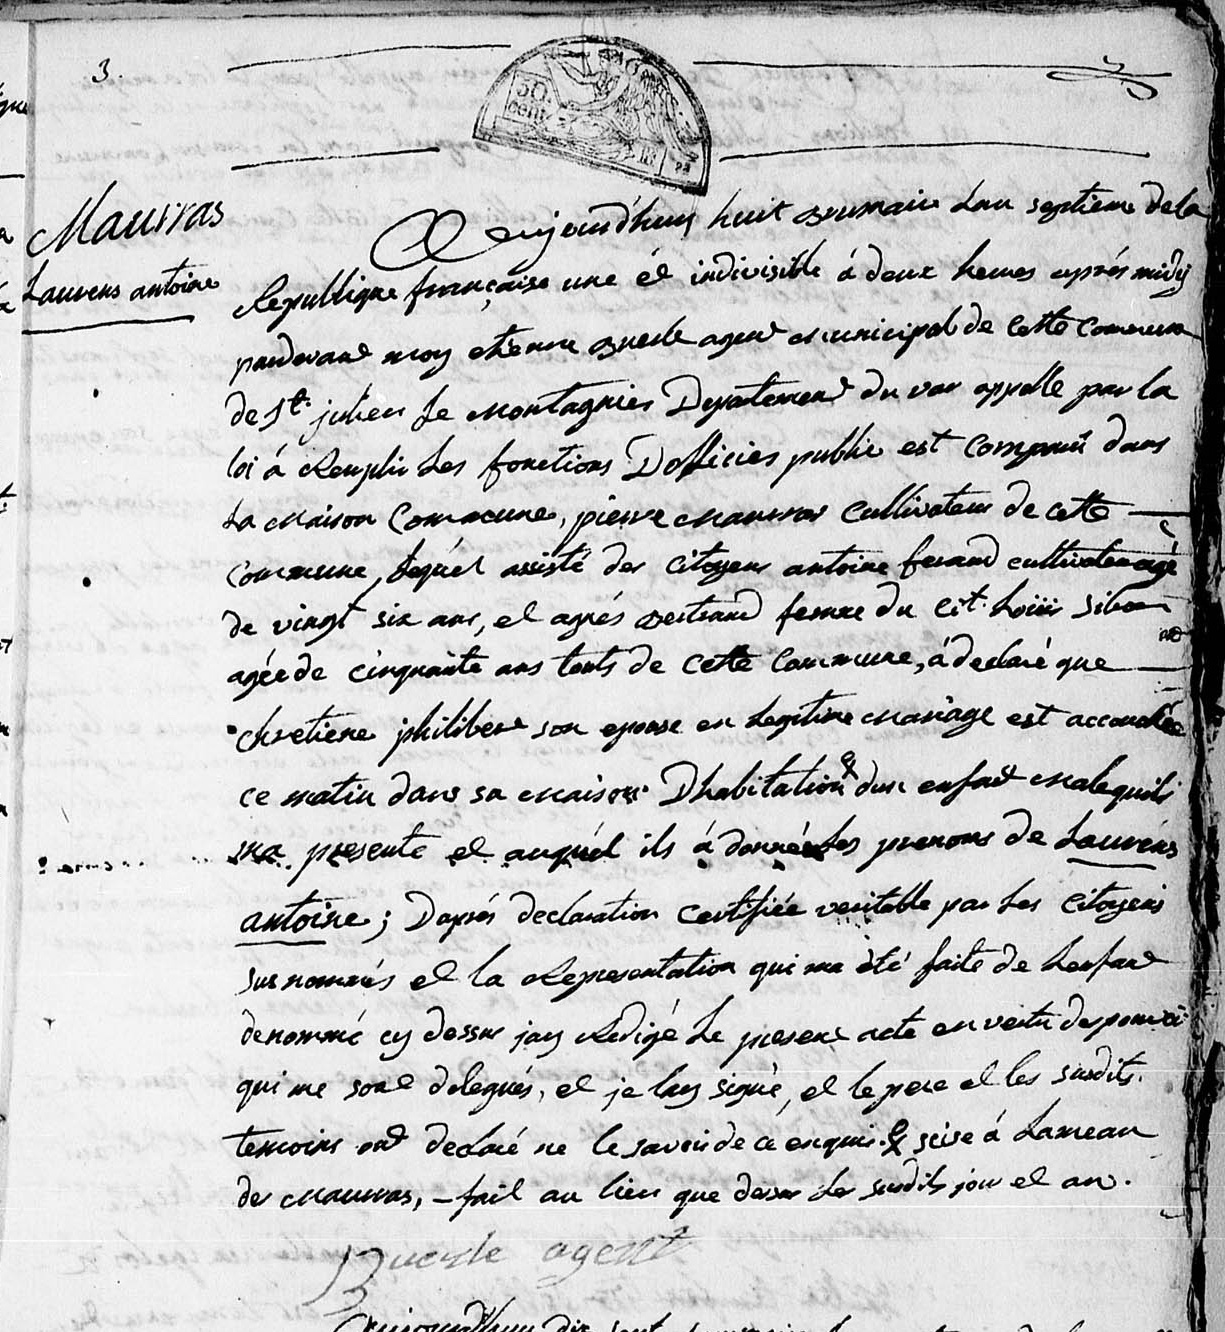 3.
50.
cent.
Maurras
Laurens antoine
Aujourd'huy huit brumaire Lan septieme de la
Republique française une él indivisible á deux heures aprés midy
pardevant moy etienne agent municipal de cette Commune
de St. julien Le Montagnier Departement du var appellé par la
loi á Remplir Les fonctions D'officier public est Comparu dans
La Maison Commune, pierre Maurras Cultivateur de cette
Commune, Lequel assisté des Citoyens antoine ferand cultivateur agé
de vingt six ans, el agnés Bertrand femme du Cit. Loüis
agée de cinquante ans touts de cette Commune, á declaré que
Chretiene philibert son epouse en Legitime Mariage est accouchée
ce matin dans sa Maison D'habitation & dun enfant Male quils
ma presenté el auquél ils á donnée Les prenoms de Laurens
antoine; Daprés declaration Certifiée veritable par Les Citoyens
sus nommés el la Representation qui ma été faite de Lenfant
denommé cy dessus jay Redigé Le present acte en vertu des pouvoi
qui me sont delegués, el je lay signé, el le pere el les susdits
temoins ont declaré ne le savoir de ce enquis. & scise á Lameau
des Maurras, - fait au lieu que dessus Les susdits jour el an.
agent
Aujourd'huy dix sept